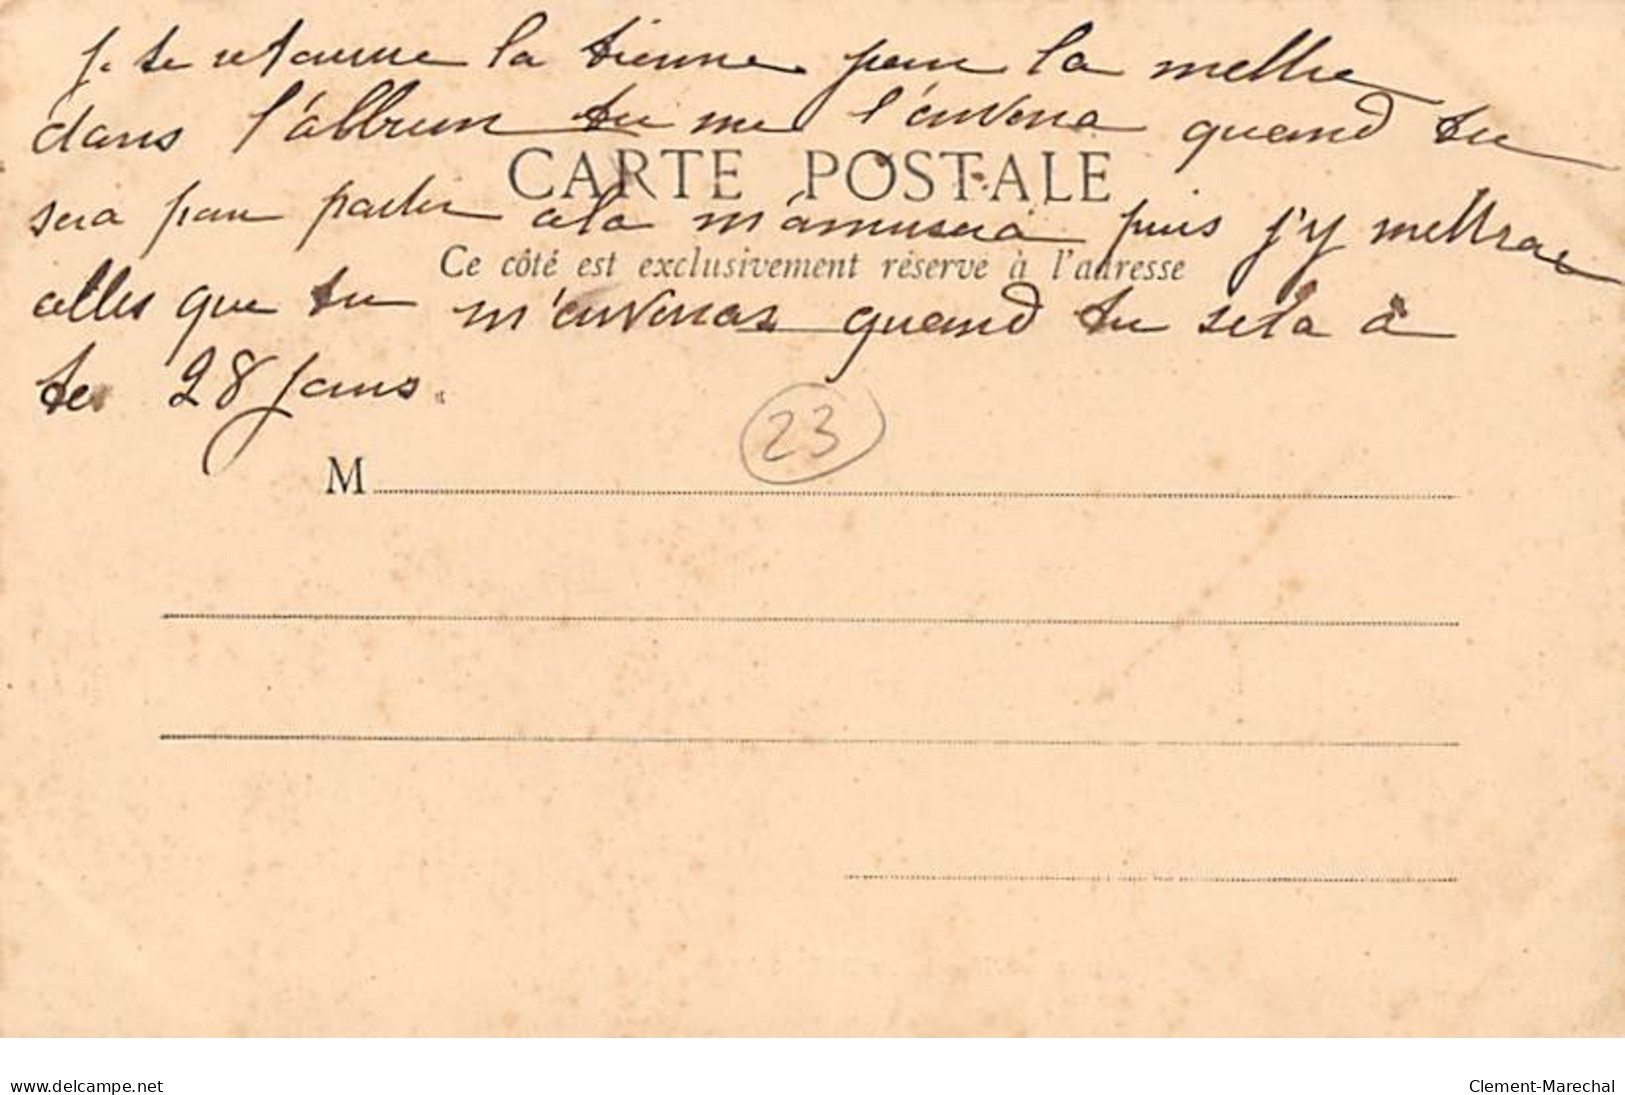 je te retourne la tienne pour la mettre
dans l'album tu me l'envera quand tu
CARTE POSTALE
sera pour partir cela m'amusera puis j'y mettrai
Ce côté est exclusivement réservé à l'adresse
celles que tu m'enverras quand tu sera à
tes 28 jours.
23
M
www.delcampe.net
Clement-Marechal